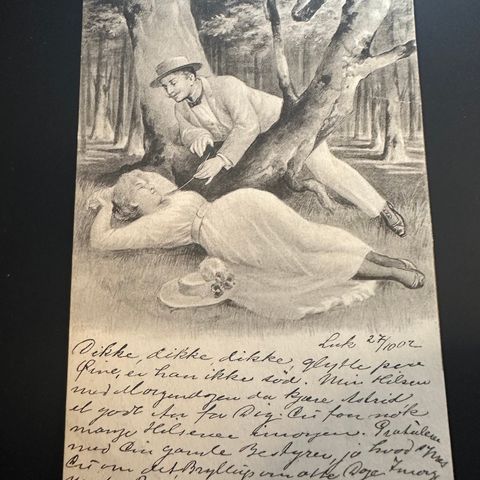 Luk 27/10 02
Dikke, dikke dikke,
er han ikke sød. Min Hilsen
med Morgendagen da kjære Astrid
et godt Aar for Dig! Du faar nok
mange Hilsener imorgen. Gratulere
med Din gamle Bestyrer, ja hvad synes
Du om det, Bryllup om otte Dage